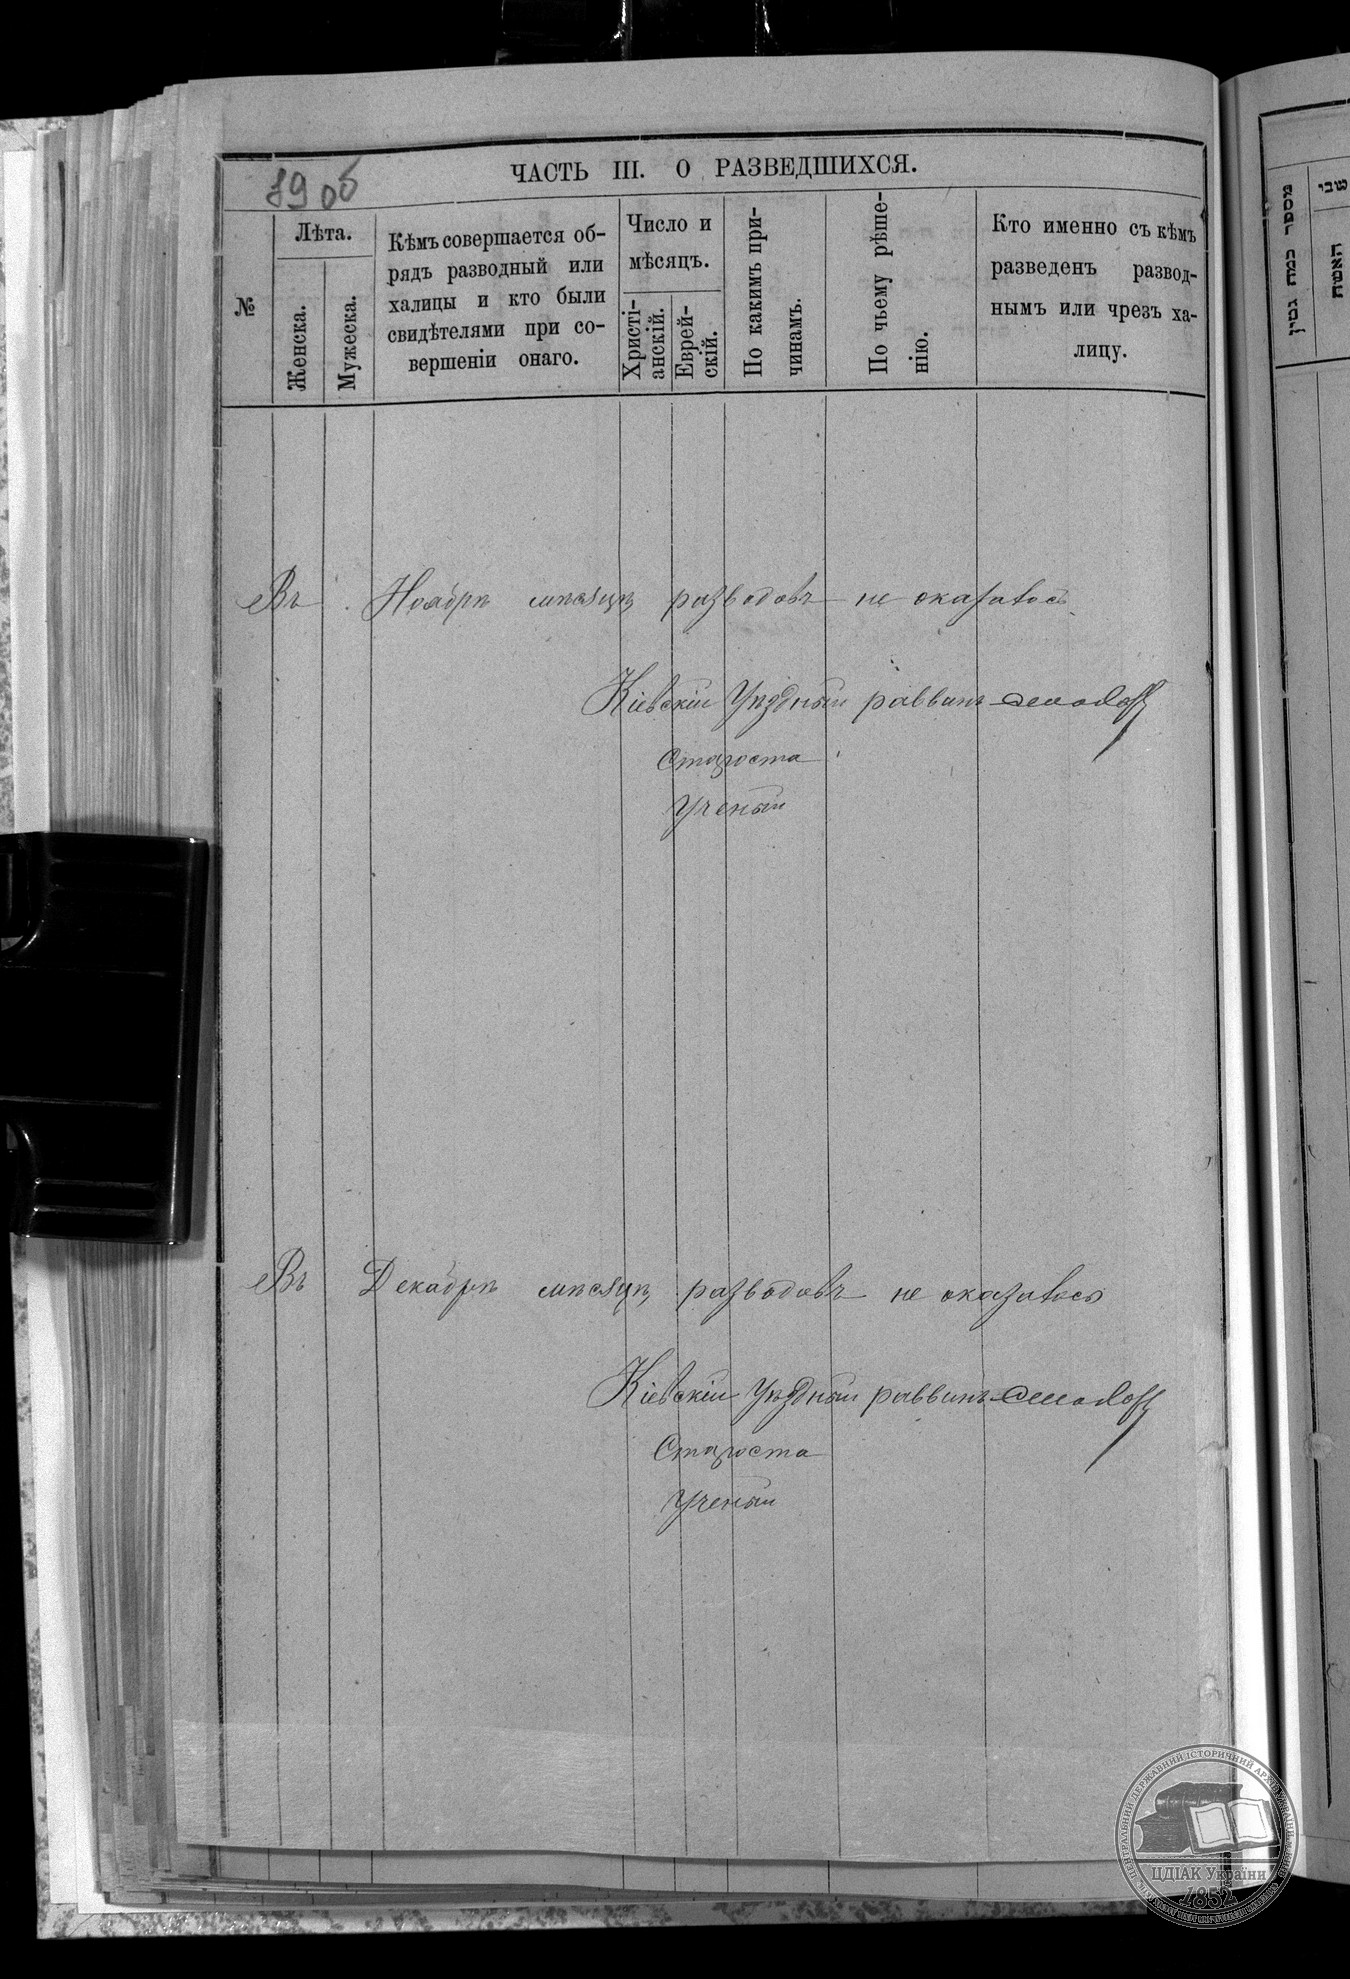 1906
ЧАСТЬ III. О РАЗВЕДШИХСЯ.
№
Лѣта.
Женска.
Мужеска.
Кѣмъ совершается об-
рядъ разводный или
халицы и кто были
свидѣтелями при со-
вершеніи онаго.
Число и
мѣсяцъ.
Христі-
анскій.
Еврей-
скій.
По какимъ при-
чинамъ.
По чьему рѣше-
нію.
Кто именно съ кѣмъ
разведенъ развод-
нымъ или чрезъ ха-
лицу.
Въ Ноябрѣ мѣсяцѣ разводовъ не оказалось
Кіевскій Уѣздный раввинъ
Староста
Ученый
Въ Декабрѣ мѣсяцѣ разводовъ не оказалось
Кіевскій Уѣздный раввинъ
Староста
Ученый
מספר כמה גטין
האשה
ЦЕНТРАЛЬНИЙ ДЕРЖАВНИЙ ІСТОРИЧНИЙ АРХІВ УКРАЇНИ
ЦДІАК України
1852